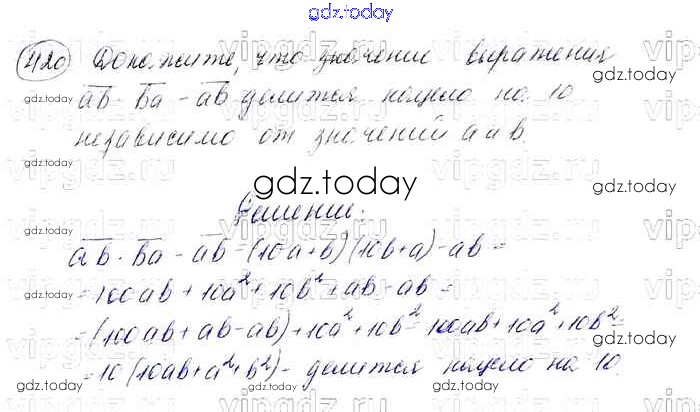 gdz.today
420 Докажите, что значение выражения
a̅b̅ · b̅a̅ - a̅b̅ делится нацело на 10
независимо от значений a и b.
gdz.today
Решение:
a̅b̅ · b̅a̅ - a̅b̅ = (10a+b)(10b+a) - ab =
= 100ab + 10a² + 10b² + ab - ab =
= (100ab + ab - ab) + 10a² + 10b² = 100ab + 10a² + 10b² =
= 10(10ab + a² + b²) - делится нацело на 10.
gdz.today
gdz.today
gdz.today
gdz.today
gdz.today
vipgdz.ru
vipgdz.ru
vipgdz.ru